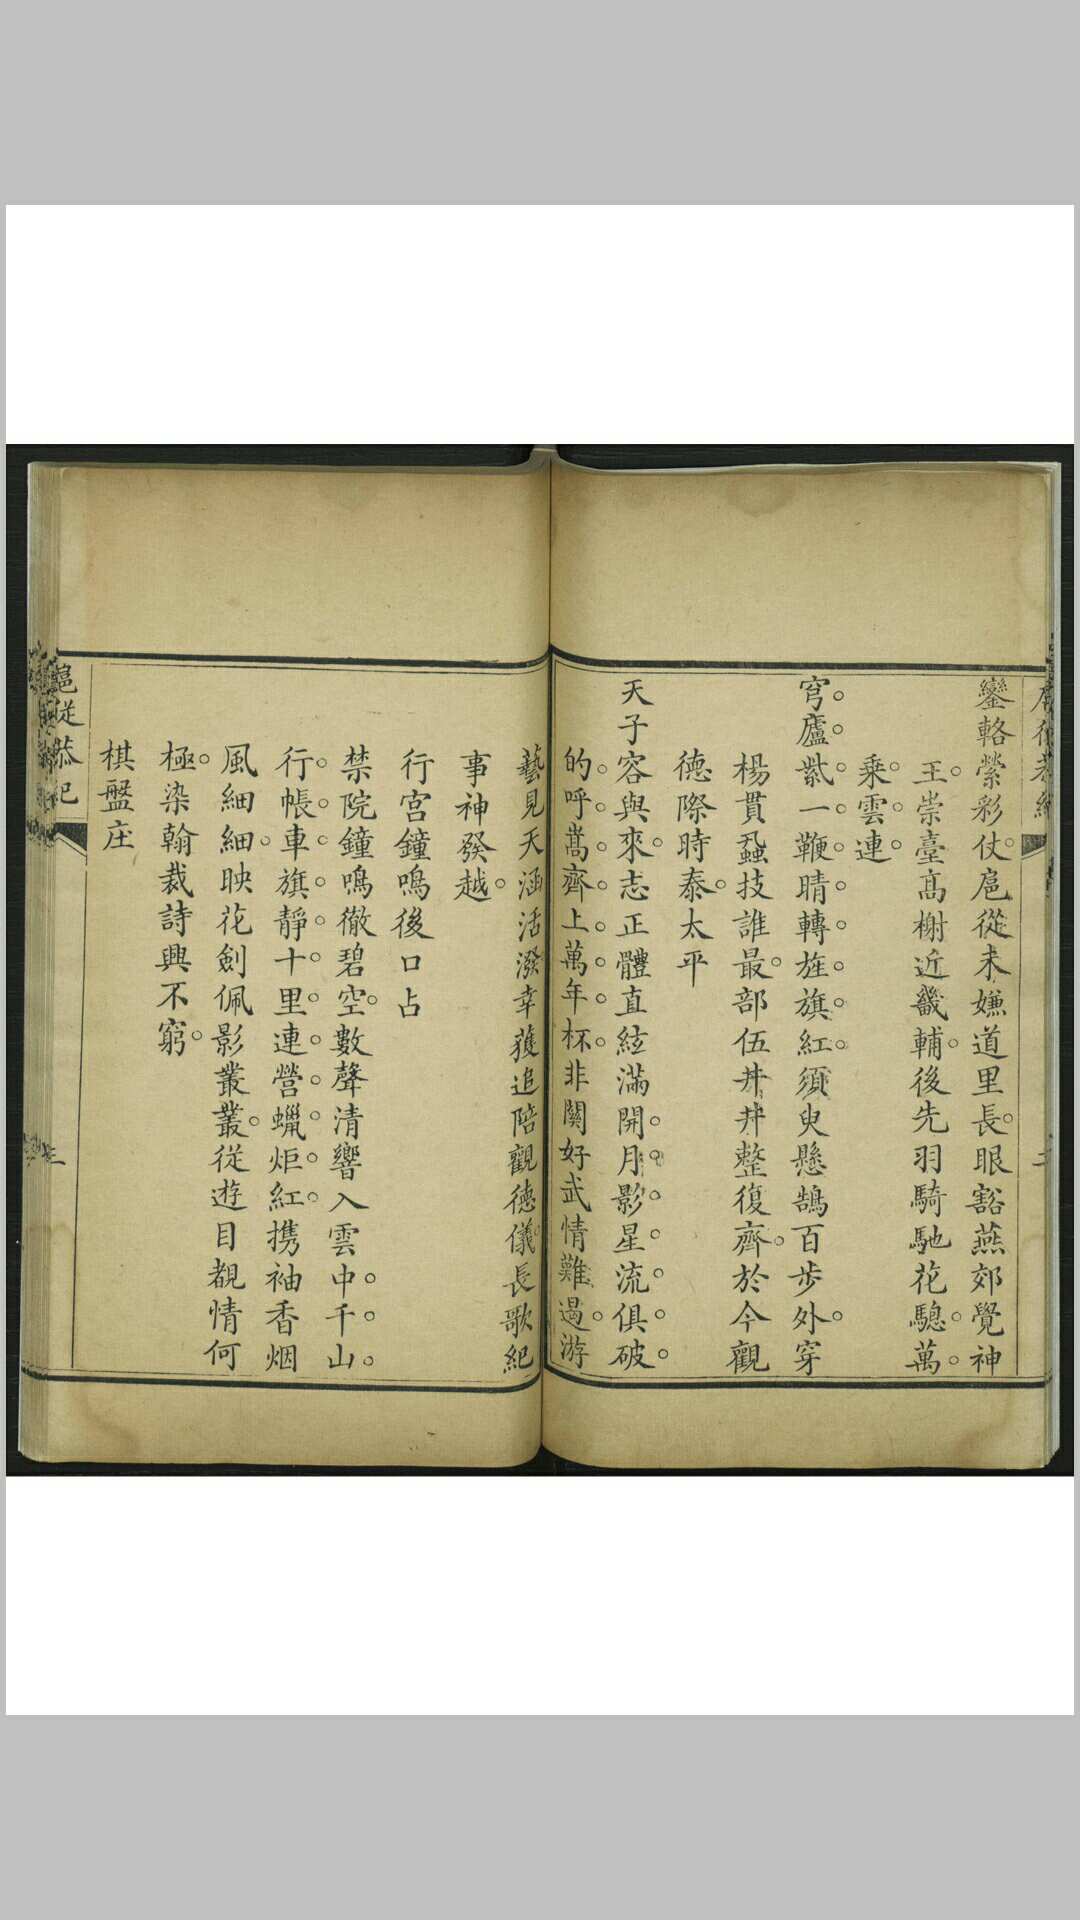 鑾輅縈彩仗。扈從未嫌道里長。眼豁燕郊覺神
王。崇臺高榭近畿輔。後先羽騎馳花驄。萬。
乘。雲。連。
穹。廬。紮。一。鞭。晴。轉。旌。旗。紅。須臾懸鵠百步外。穿
楊貫蝨技誰最。部伍井井整復齊。於今觀
德際時泰。太平
天子容與來。志正體直絃滿開。月。影。星。流。俱。破。
的。呼。嵩。齊。上。萬。年。杯。非關好武情難遏。游
藝見天涵活潑幸獲追陪觀德儀。長歌紀
事神發越。
行宮鐘鳴後口占
禁院鐘鳴徹碧空。數聲清響入雲中。千。山。
行。帳。車。旗。靜。十。里。連。營。蠟。炬。紅。携袖香烟
風細細。映花劍佩影叢叢。從遊目覩情何
極。染翰裁詩興不窮。
棋盤庄
扈從恭紀
三